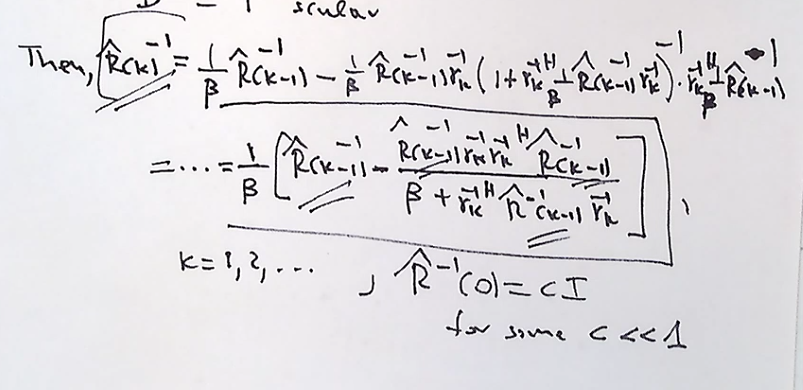 D = 1 scular
Then, R̂(k)⁻¹ = 1/β R̂(k-1)⁻¹ - 1/β R̂(k-1)⁻¹ r̄ₖ (1 + r̄ₖᴴ 1/β R̂(k-1)⁻¹ r̄ₖ)⁻¹ · r̄ₖᴴ 1/β R̂(k-1)⁻¹
= ... = 1/β [ R̂(k-1)⁻¹ - R̂(k-1)⁻¹ r̄ₖ r̄ₖᴴ R̂(k-1)⁻¹ / β + r̄ₖᴴ R̂⁻¹(k-1) r̄ₖ ] ,
k = 1, 2, ... , R̂⁻¹(0) = cI
for some c << 1